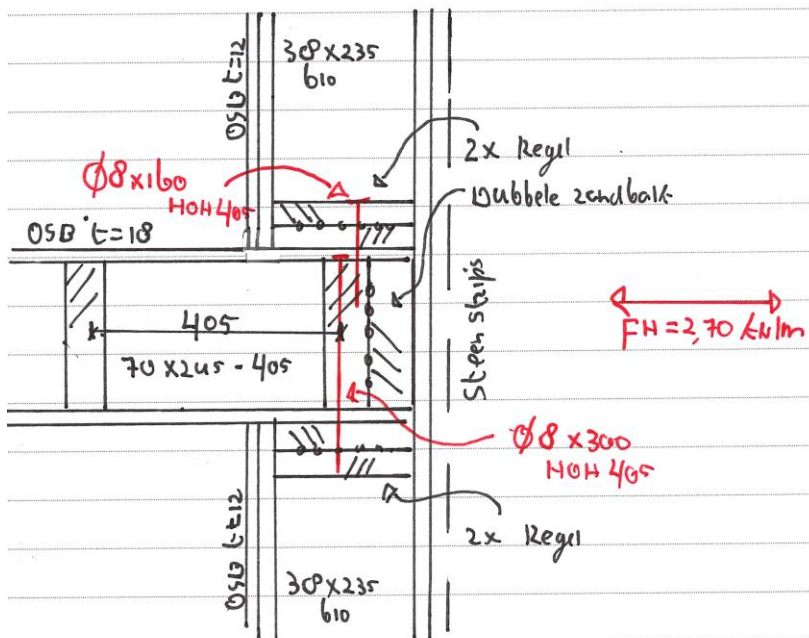 OSB t=12
38x235
610
2x Regel
Ø8x160
HOH 405
Dubbele randbalk
OSB t=18
405
70x245-405
Steenstrips
FH=2,70 kN/m
Ø8x300
HOH 405
2x Regel
OSB t=12
38x235
610